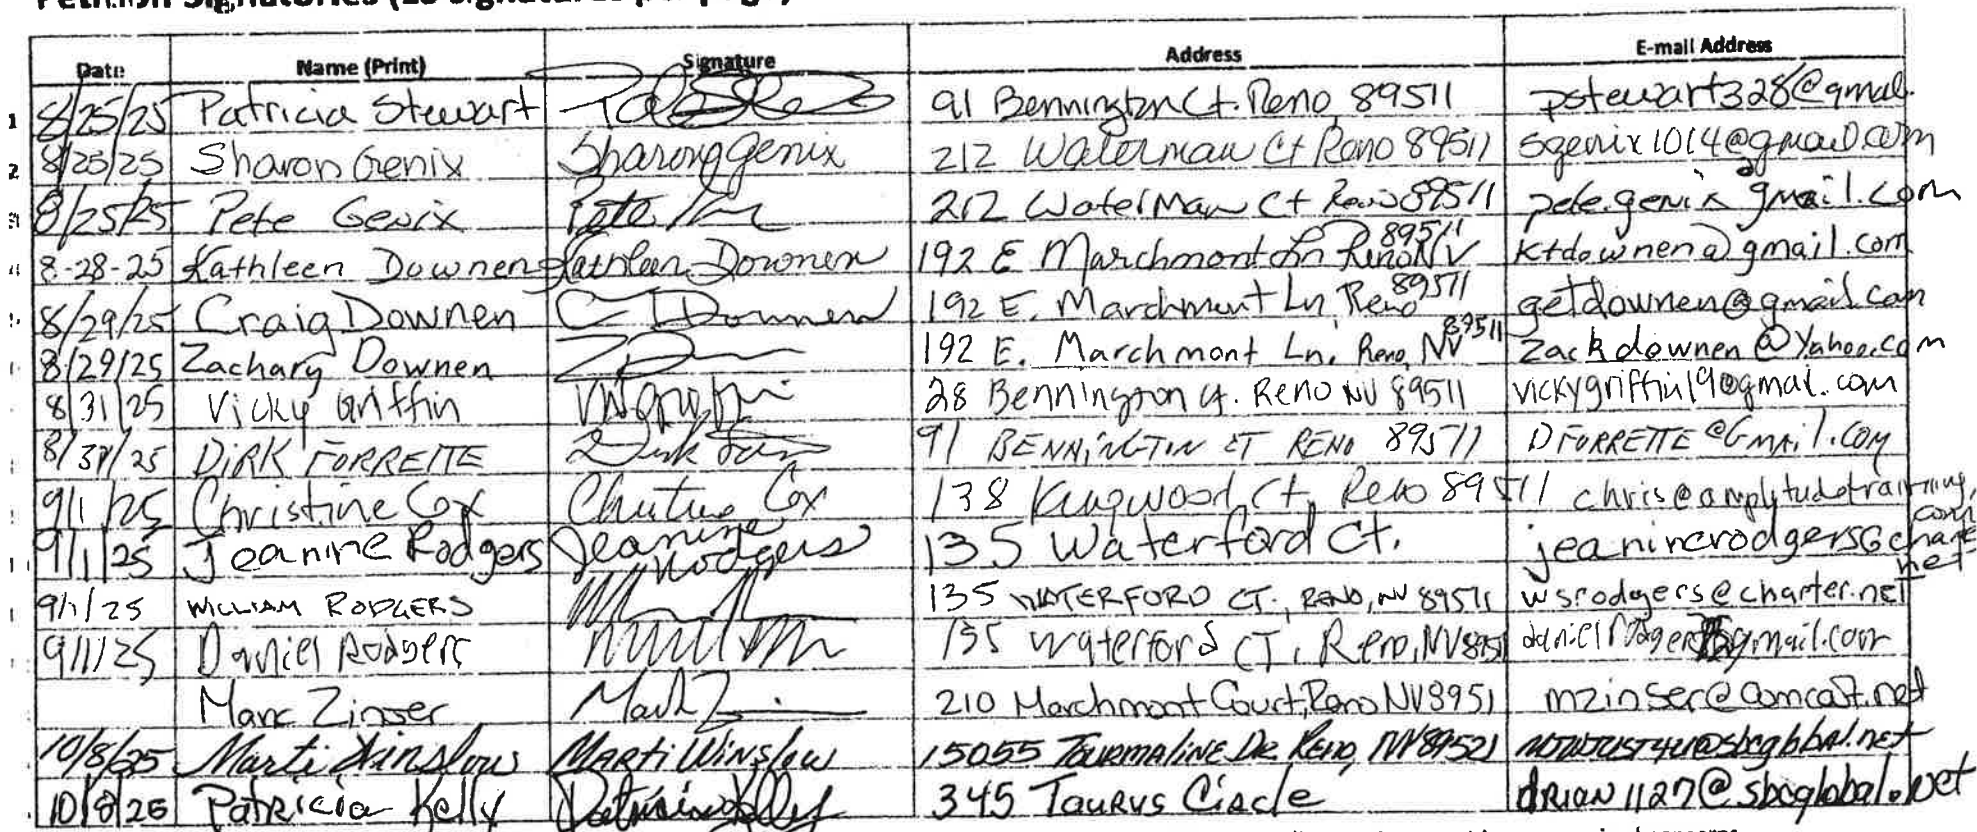 Petition Signatories
Date Name (Print) Signature Address E-mail Address
1 8/25/25 Patricia Stewart 91 Bennington Ct. Reno 89511 pstewart328@gmail.
2 8/25/25 Sharon Genix Sharon Genix 212 Waterman Ct Reno 89511 sgenix1014@gmail.com
3 8/25/25 Pete Genix Pete 212 Waterman Ct Reno 89511 pete.genix gmail.com
4 8-28-25 Kathleen Downen Kathleen Downen 192 E Marchmont Ln Reno NV 89511 ktdownen@gmail.com
8/29/25 Craig Downen C Downen 192 E. Marchmont Ln, Reno 89511 getdownen@gmail.com
8/29/25 Zachary Downen 192 E. Marchmont Ln. Reno, NV 89511 zackdownen@Yahoo.com
8/31/25 Vicky Griffin 28 Bennington Ct. Reno NV 89511 vickygriffin19@gmail.com
8/31/25 DIRK FORRETTE Dirk 91 BENNINGTON CT RENO 89511 DFORRETTE@Gmail.com
9/1/25 Christine Cox Christine Cox 138 Kingwood Ct, Reno 89511 chris@amplitudetraining.com
9/1/25 Jeanine Rodgers Jeanine Rodgers 135 Waterford Ct. jeaninerodgers@charter.net
9/1/25 WILLIAM RODGERS 135 WATERFORD CT., RENO, NV 89511 wsrodgers@charter.net
9/1/25 Daniel Rodgers 135 Waterford CT, Reno, NV 89511
Marc Zinser 210 Marchmont Court, Reno NV 8951 mzinser@comcast.net
10/8/25 Marti Winslow Marti Winslow 15055 TOURMALINE DR. RENO, NV 89521
10/8/25 Patricia Kelly Patricia Kelly 345 Taurus Circle DRION1127@sbcglobal.net